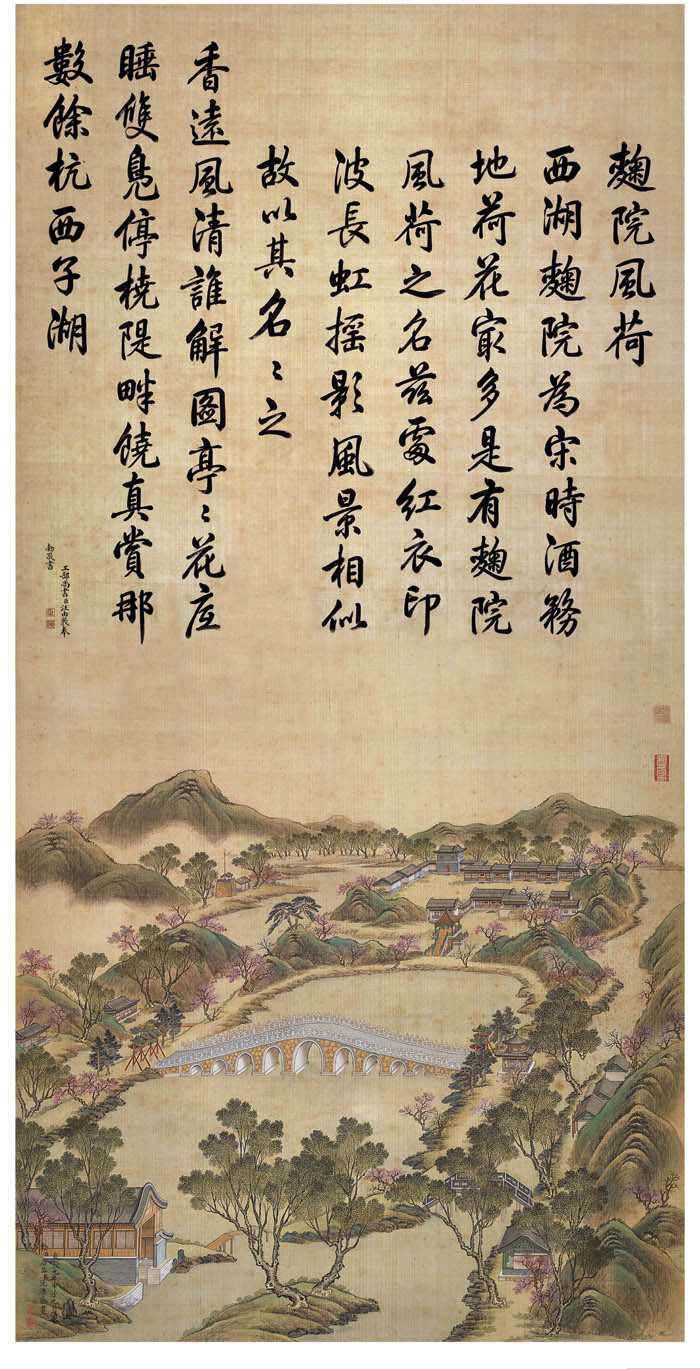 麴院風荷
西湖麴院為宋時酒務
地荷花㝡多是有麴院
風荷之名茲處紅衣印
波長虹搖影風景相似
故以其名〻之
香遠風清誰解圖亭〻花底
睡雙鳧停橈隄畔饒真賞那
數餘杭西子湖
工部尚書臣汪由敦奉
勅敬書